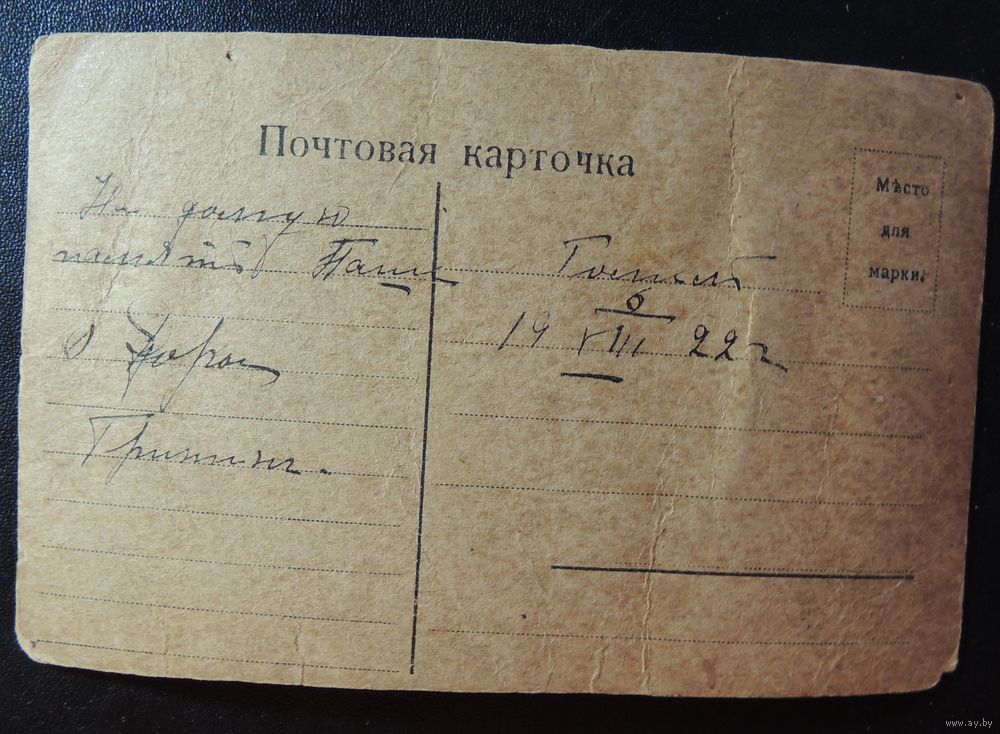 Почтовая карточка
Мѣсто
для
марки.
На долгую
память Паши
Гомель
6
19 VIII 22 г
www.ay.by